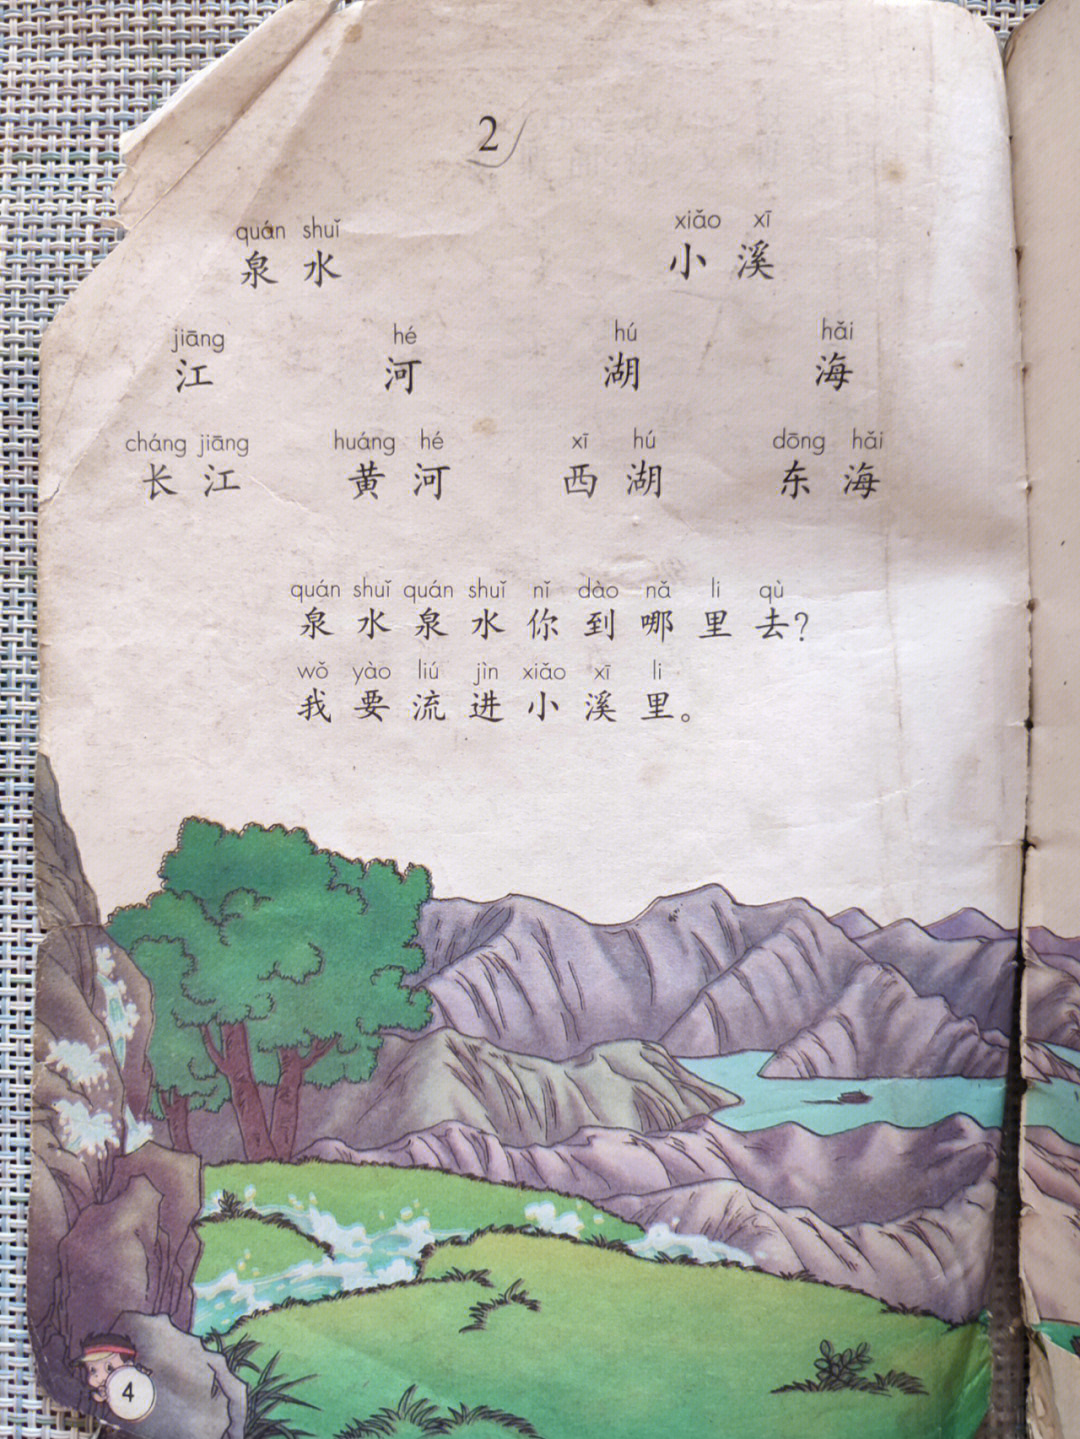 2
quán shuǐ xiǎo xī
泉水 小溪
jiāng hé hú hǎi
江 河 湖 海
cháng jiāng huáng hé xī hú dōng hǎi
长江 黄河 西湖 东海
quán shuǐ quán shuǐ nǐ dào nǎ li qù
泉水泉水你到哪里去?
wǒ yào liú jìn xiǎo xī li
我要流进小溪里。
4